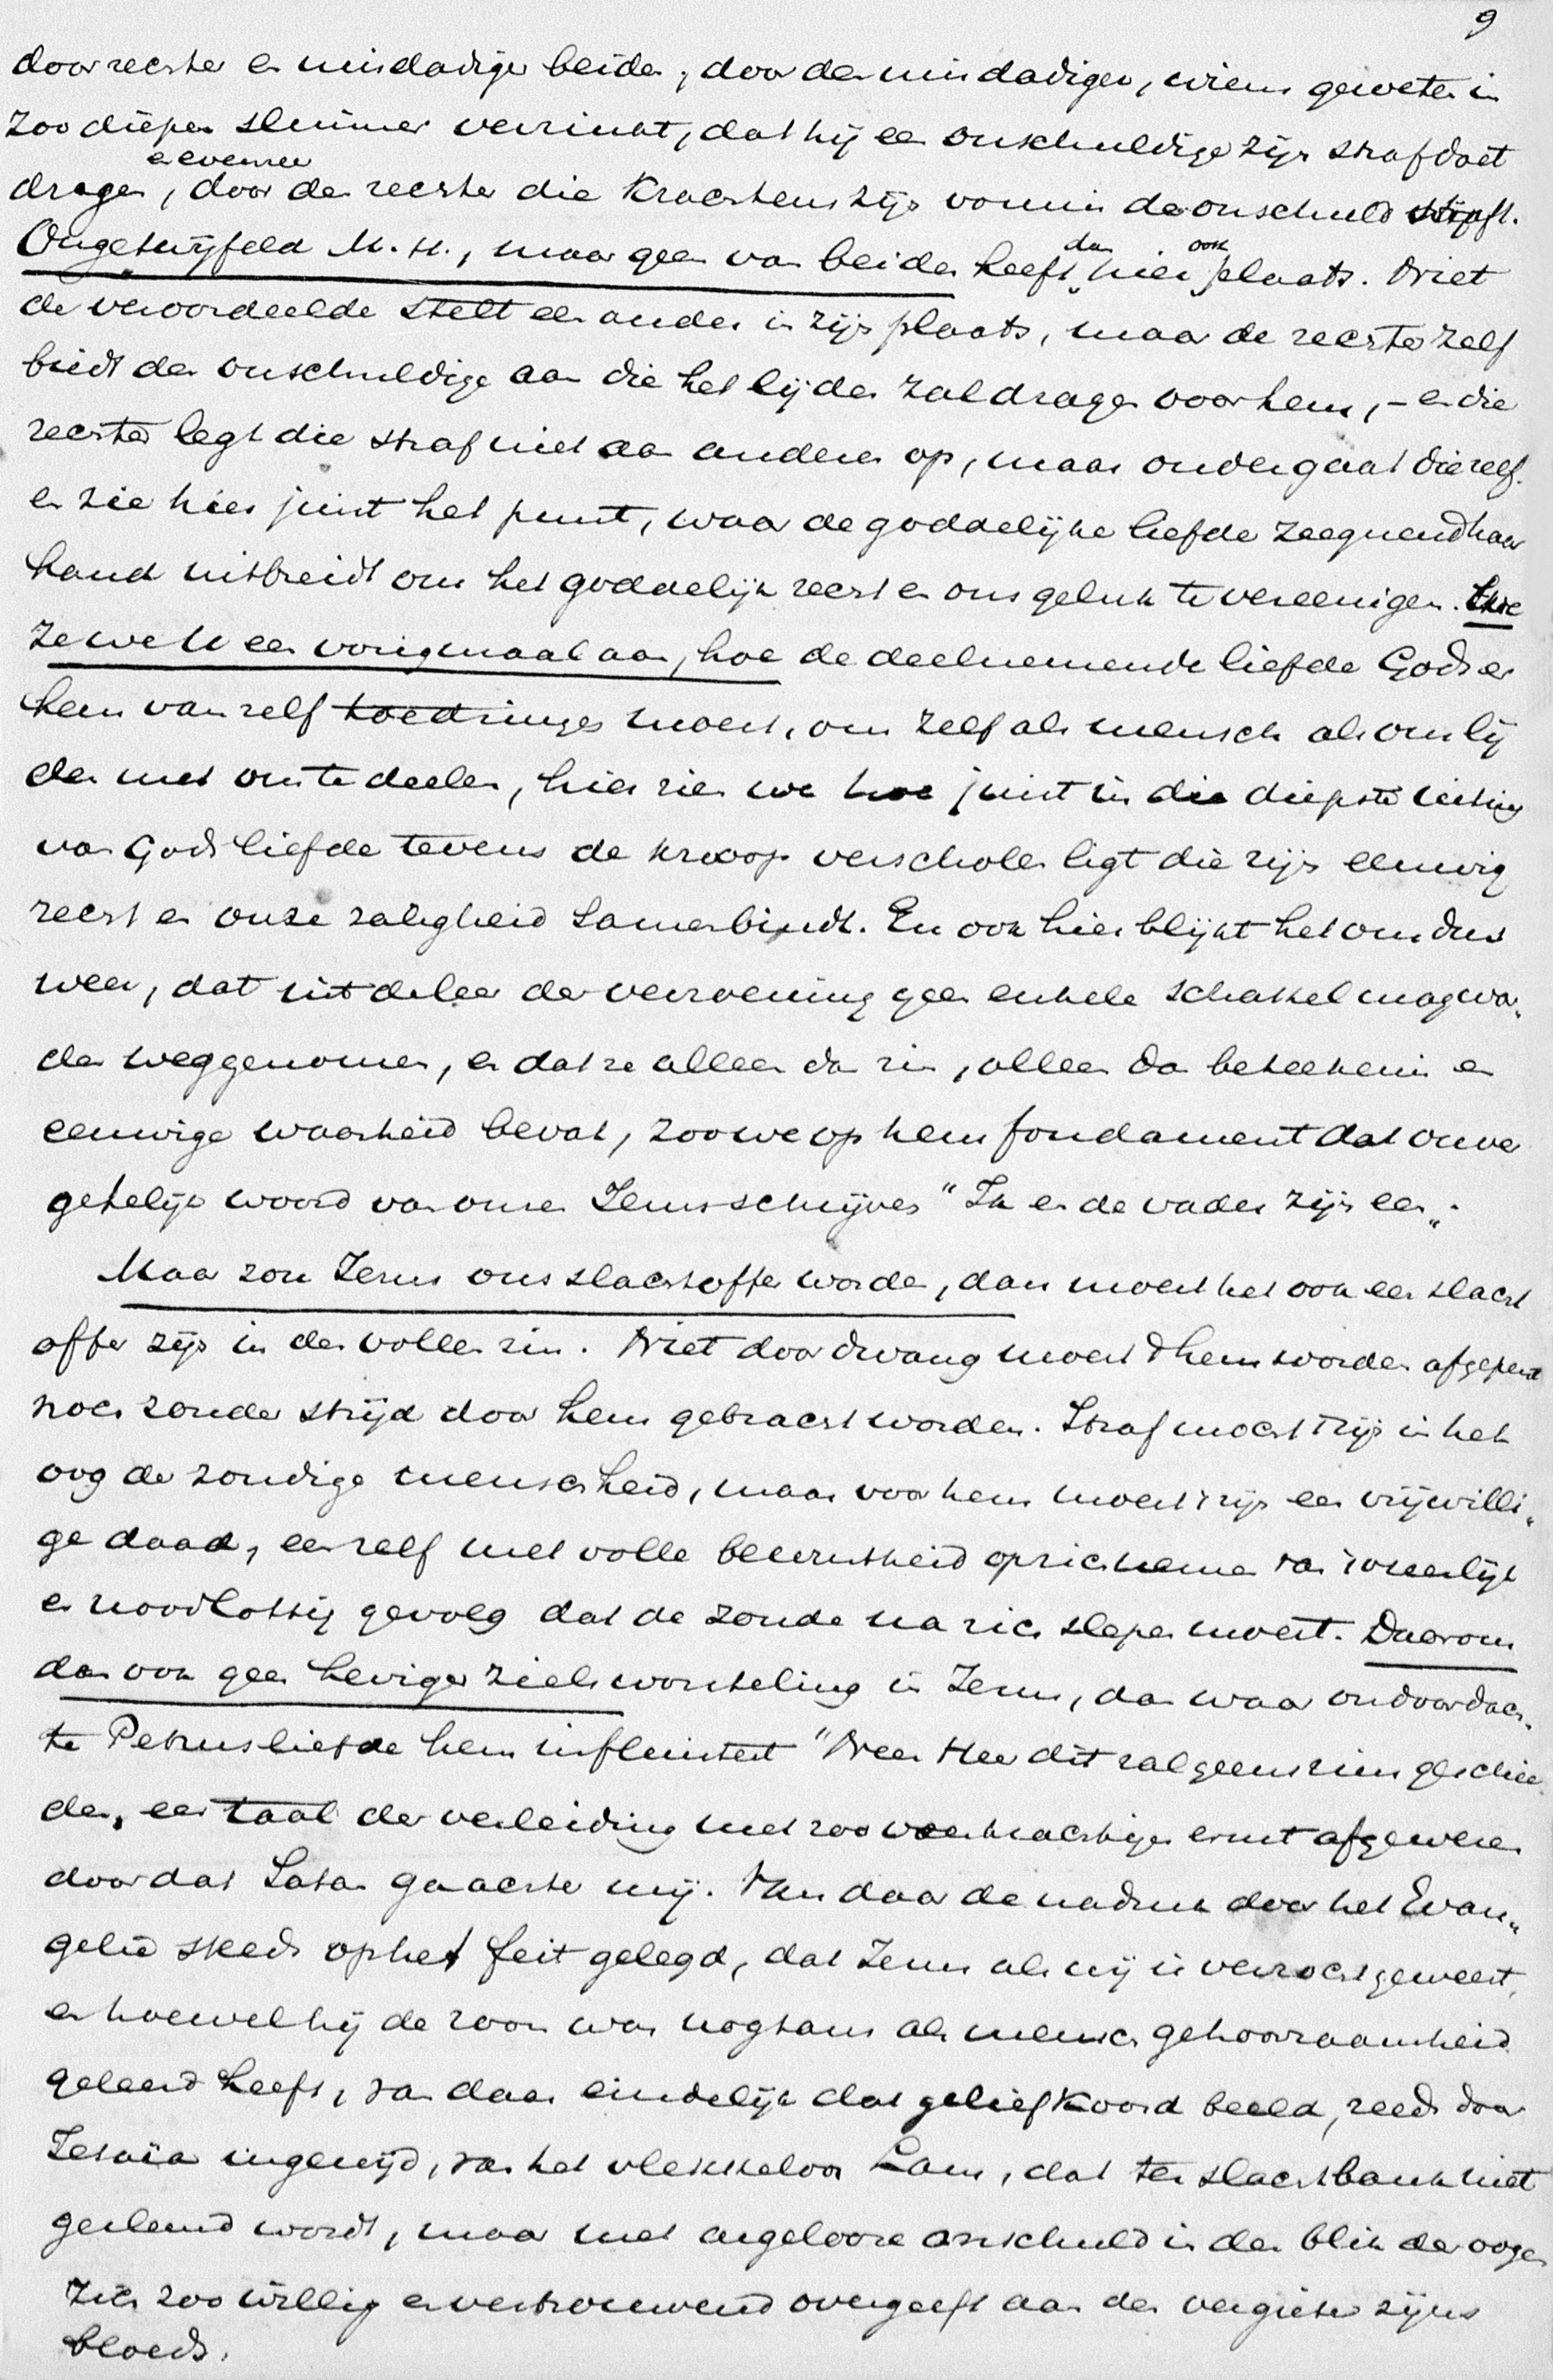 9
door rechter en misdadiger beiden, door den misdadiger, wiens geweten in
zoo diepen sluimer verzinkt, dat hij een onschuldige zijn straf doet
en evenzeer
dragen, door den rechter die krachtens zijn vonnis de onschuld straft.
Ongetwijfeld M. H., maar geen van beiden heeft dan hier ook plaats. Niet
de veroordeelde stelt een ander in zijn plaats, maar de rechter zelf
biedt den onschuldige aan die het lijden zal dragen voor hem, - en die
rechter legt die straf niet aan anderen op, maar ondergaat die zelf.
en zie hier juist het punt, waar de goddelijke liefde zeegnend haar
hand uitbreidt om het goddelijk recht en ons geluk te vereenigen.
ze we U een vorigmaal aan, hoe de deelnemende liefde Gods er
hem van zelf toedringen moest, om zelf als mensch al ons lij
den met ons te deelen, hier zien we hoe juist in die diepste uiting
van Gods liefde tevens de knoop verscholen ligt die zijn eeuwig
recht en onze zaligheid samenbindt. En ook hier blijkt het ons dus
weer, dat uit de leer der verzoening geen enkele schakel mag wor„
den weggenomen, en dat ze alleen dan zin, alleen dan beteekenis en
eeuwige waarheid bevat, zoo we op hem fondament dat onver
getelijk woord van onzen Jezus schrijven "Ik en de vader zijn een„.
Maar zou Jezus ons slachtoffer worden, dan moest het ook een slacht
offer zijn in den vollen zin. Niet door dwang moest 't hem worden afgeperst
noch zonder strijd door hem gebracht worden. Straf mocht 't zijn in het
oog der zondige menschheid, maar voor hem moest 't zijn een vrijwilli„
ge daad, een zelf met volle bewustheid op zich nemen van 't vreeslijk
en noodlottig gevolg dat de zonde na zich slepen moest. Daarom
dan ook geen heviger zielsworsteling in Jezus, dan waar ondoordach„
te Petrusliefde hem influistert "Neen Heer dit zal geenszins geschie
den„ een taal der verleiding met zoo veel krachtigen ernst afgewezen
door dat Satan ga achter mij. Van daar de nadruk door het Evan„
gelie steeds op het feit gelegd, dat Jezus als wij is verzocht geweest,
en hoewel hij de zoon was nogtans als mensch gehoorzaamheid
geleerd heeft, van daar eindelijk dat geliefkoosd beeld, reeds door
Jesaïa ingewijd, van het vlekkeloos Lam, dat ter slachtbank niet
gesleurd wordt, maar met argelooze onschuld in den blik der oogen
zich zoo willig en vertrouwend overgeeft aan den vergieter zijns
bloeds.